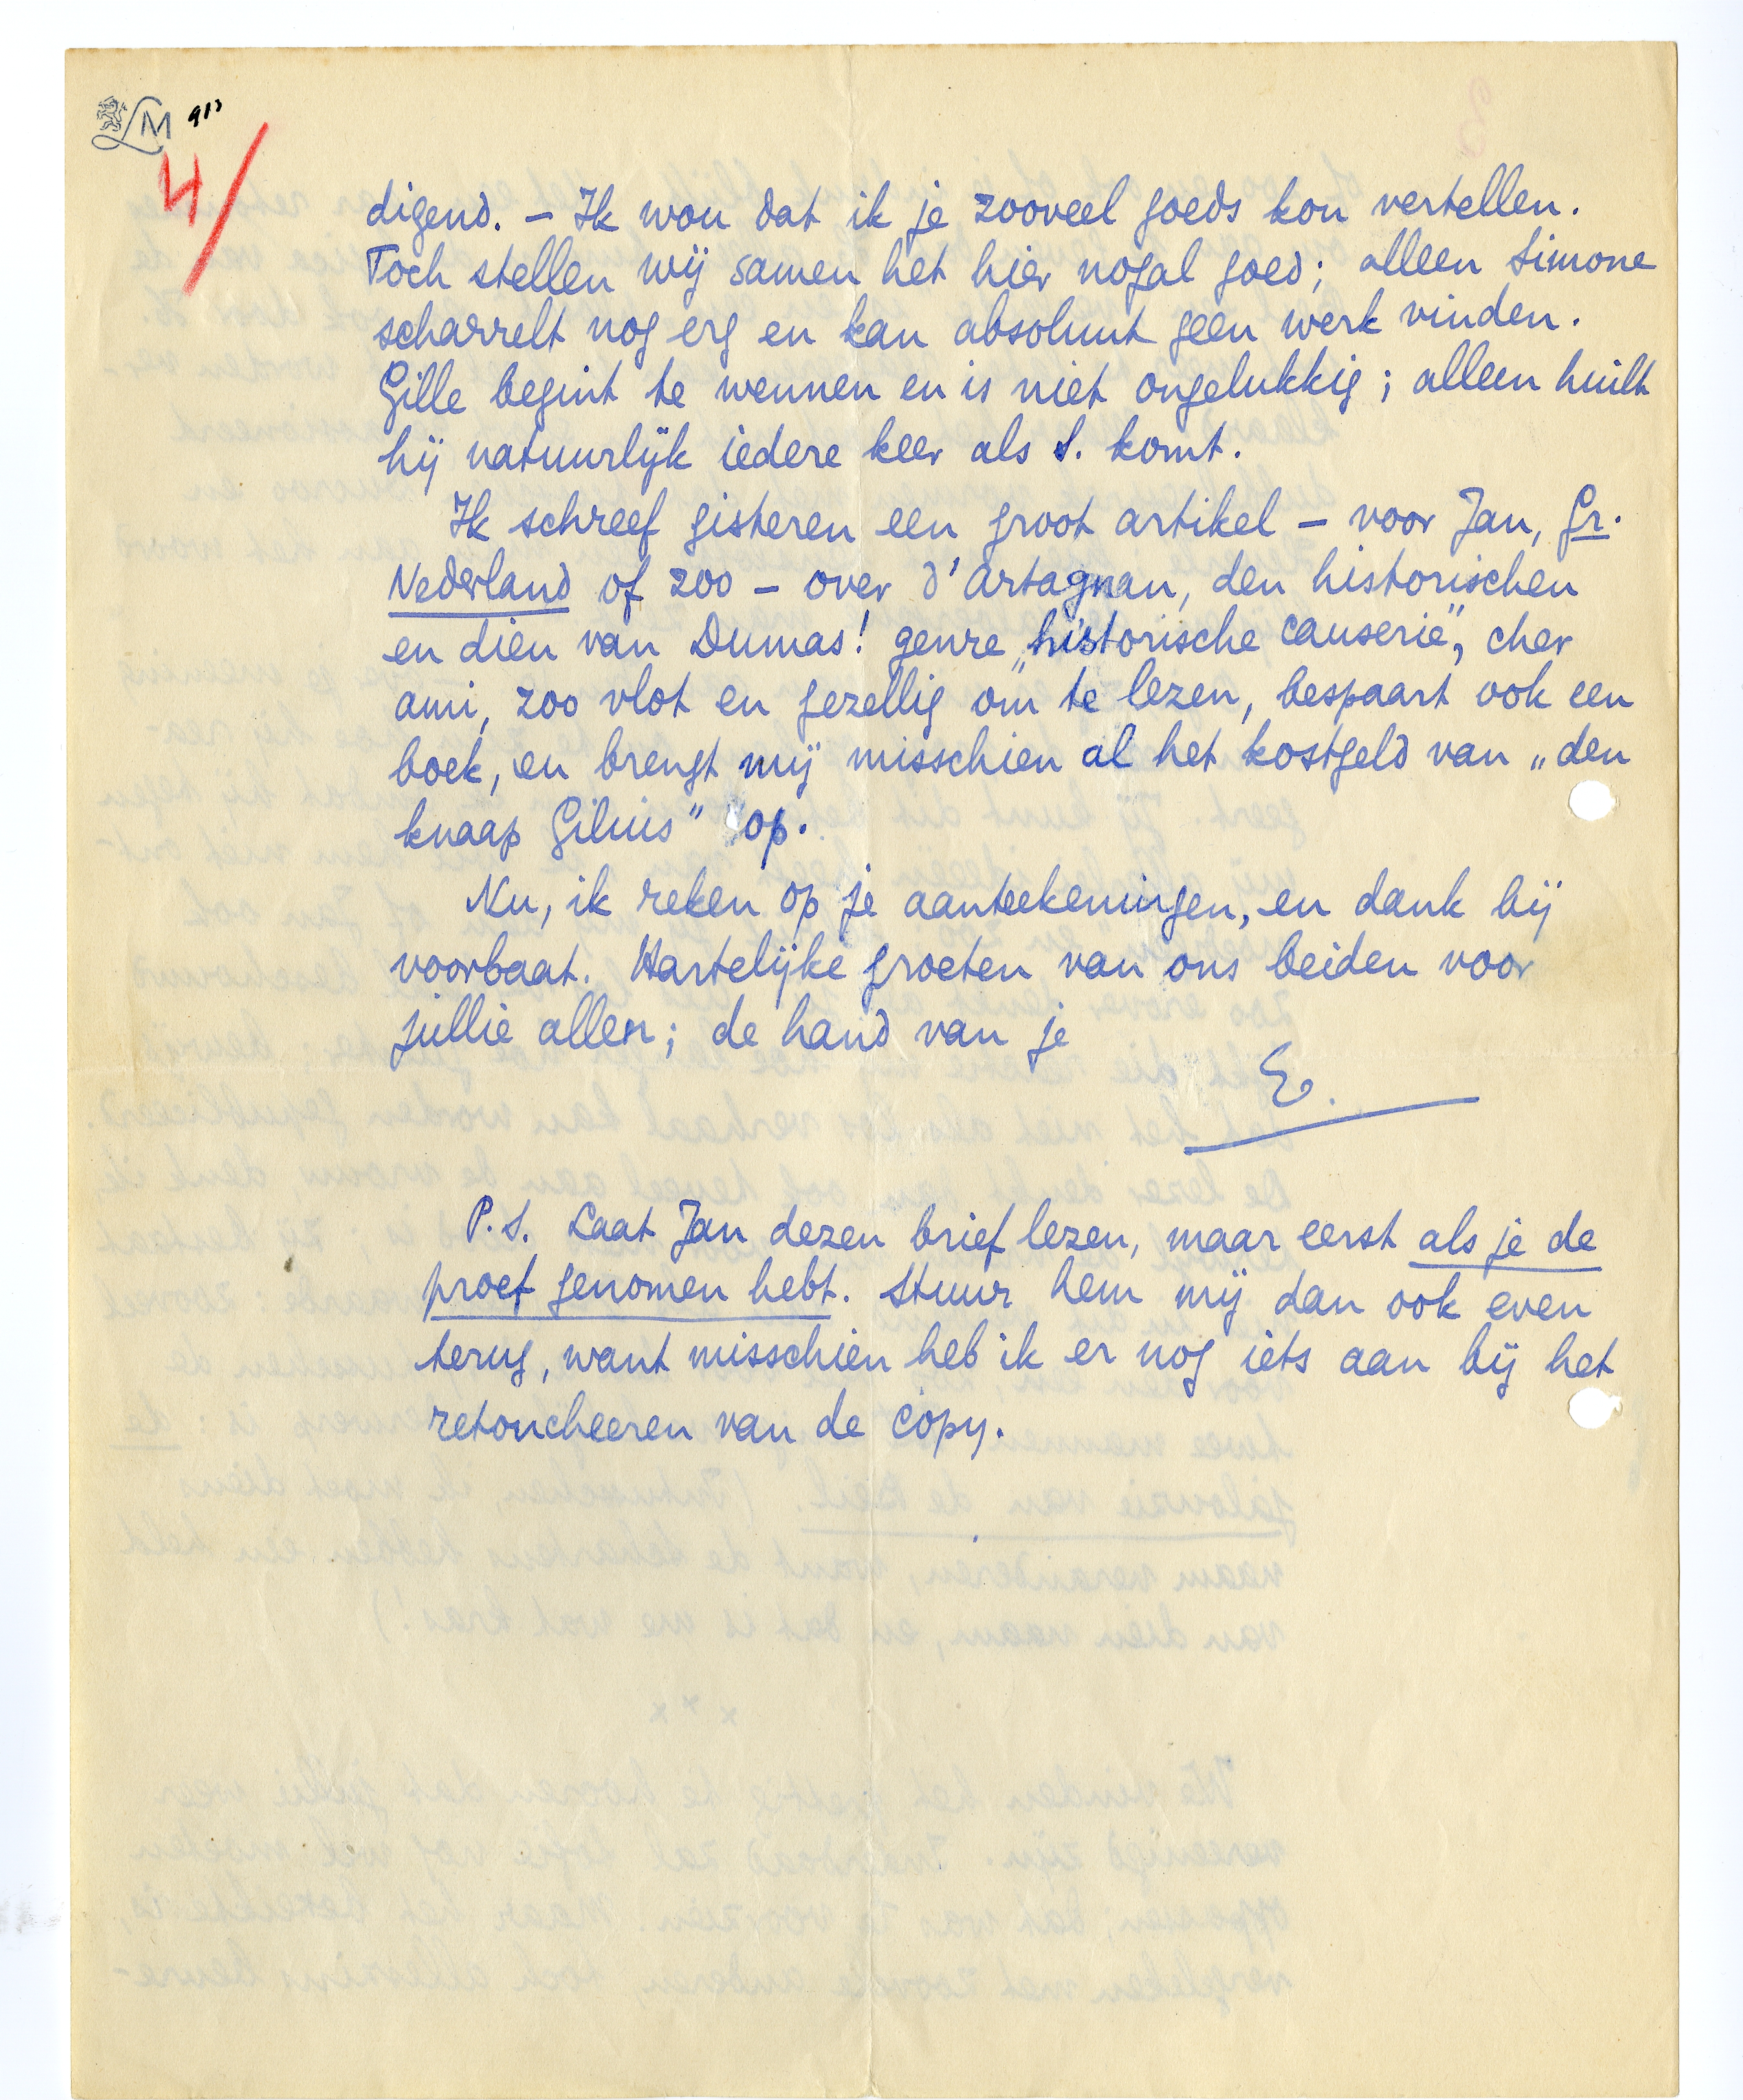 LM 913
4/
digend. – Ik wou dat ik je zooveel goeds kon vertellen.
Toch stellen wij samen het hier nogal goed; alleen Simone
scharrelt nog erg en kan absoluut geen werk vinden.
Gille begint te wennen en is niet ongelukkig; alleen huilt
hij natuurlijk iedere keer als S. komt.
Ik schreef gisteren een groot artikel – voor Jan, Gr.
Nederland of zoo – over d'Artagnan, den historischen
en dien van Dumas! genre „historische causerie", cher
ami, zoo vlot en gezellig om te lezen, bespaart ook een
boek, en brengt mij misschien al het kostgeld van „den
knaap Gilius" op.
Nu, ik reken op je aanteekeningen, en dank bij
voorbaat. Hartelijke groeten van ons beiden voor
jullie allen; de hand van je
E.
P.S. Laat Jan dezen brief lezen, maar eerst als je de
proef genomen hebt. Stuur hem mij dan ook even
terug, want misschien heb ik er nog iets aan bij het
retoucheeren van de copy.